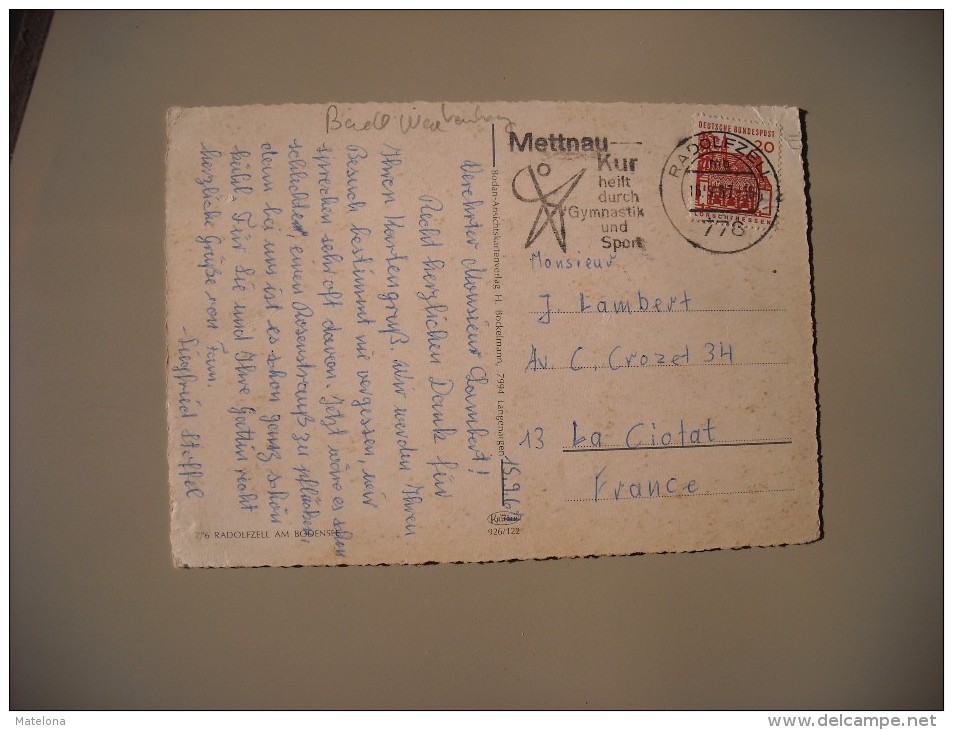 Verehrter Monsieur Lambert!
Recht herzlichen Dank für
Ihren Kartengruß. Wir werden Ihren
Besuch bestimmt nie vergessen, wir
sprechen sehr oft davon. Jetzt wäre es schon
schlechter, einen Rosenstrauß zu pflücken,
denn bei uns ist es schon ganz schön
kühl. Für Sie und Ihre Gattin recht
herzliche Grüße von Fam.
Siegfried Stoffel
776 RADOLFZELL AM BODENSEE
Bodan-Ansichtskartenverlag H. Bockelmann, 7994 Langenargen
15.9.67
Krüger
926/122
Mettnau
Kur
heilt
durch
Gymnastik
und
Sport
RADOLFZELL
776
DEUTSCHE BUNDESPOST
20
LORSCH/HESSEN
Monsieur
J. Lambert
Av. C. Crozet 34
13 La Ciotat
France
Matelona
www.delcampe.net